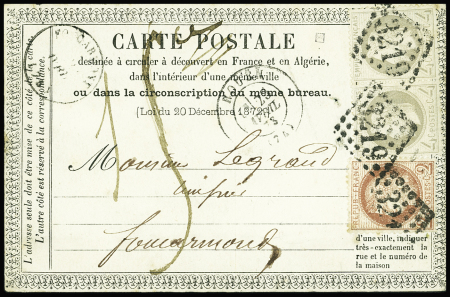 CARTE POSTALE
destinée à circuler à découvert en France et en Algérie,
dans l'intérieur d'une même ville
ou dans la circonscription du même bureau.
(Loi du 20 Décembre 1872)
Monsieur Legrand
foucarmond
L'adresse seule doit être mise de ce côté de la carte.
L'autre côté est réservé à la correspondance.
d'une ville, indiquer
très-exactement la
rue et le numéro de
la maison
15